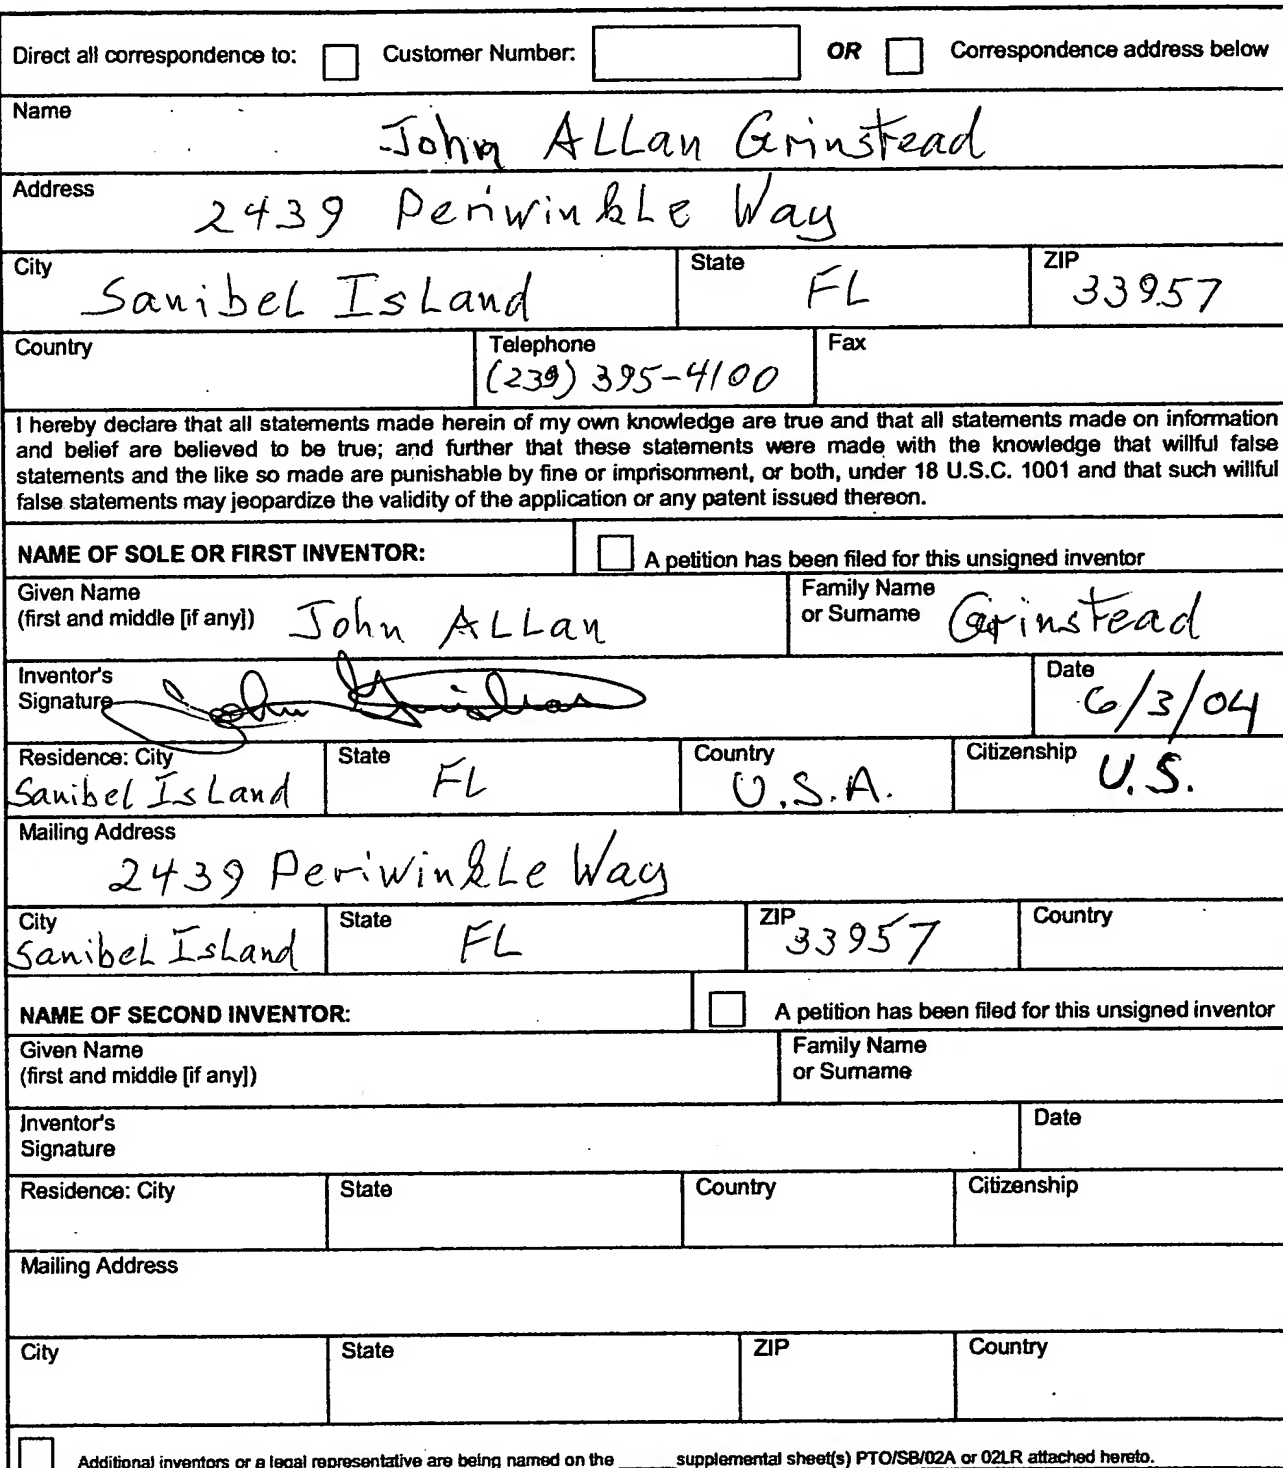 Direct all correspondence to: Customer Number: OR Correspondence address below
Name
John ALLan Grinstead
Address
2439 Periwinkle Way
City Sanibel Island State FL ZIP 33957
Country Telephone (239) 395-4100 Fax
I hereby declare that all statements made herein of my own knowledge are true and that all statements made on information
and belief are believed to be true; and further that these statements were made with the knowledge that willful false
statements and the like so made are punishable by fine or imprisonment, or both, under 18 U.S.C. 1001 and that such willful
false statements may jeopardize the validity of the application or any patent issued thereon.
NAME OF SOLE OR FIRST INVENTOR: A petition has been filed for this unsigned inventor
Given Name
(first and middle [if any]) John ALLan
Family Name
or Surname Grinstead
Inventor's
Signature John Grinstead
Date 6/3/04
Residence: City Sanibel Island State FL Country U.S.A. Citizenship U.S.
Mailing Address
2439 Periwinkle Way
City Sanibel Island State FL ZIP 33957 Country
NAME OF SECOND INVENTOR: A petition has been filed for this unsigned inventor
Given Name
(first and middle [if any])
Family Name
or Surname
Inventor's
Signature
Date
Residence: City State Country Citizenship
Mailing Address
City State ZIP Country
Additional inventors or a legal representative are being named on the _____ supplemental sheet(s) PTO/SB/02A or 02LR attached hereto.